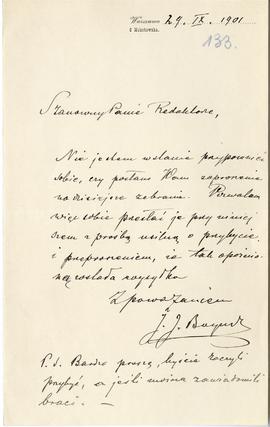 Warszawa 29. IX. 1901
6 Mokotowska.
133.
Szanowny Panie Redaktorze,
Nie jestem w stanie przypomnieć
sobie, czy posłano Wam zaproszenie
na dzisiejsze zebranie. Pozwalam
więc sobie przesłać je przy niniej
szem z prośbą usilną o przybycie
i przeproszeniem, że tak opóźnio
ną została wysyłka
Z poważaniem
J. J.
P. S. Bardzo proszę, byście raczyli
przybyć, a jeśli można zawiadomili
braci. -